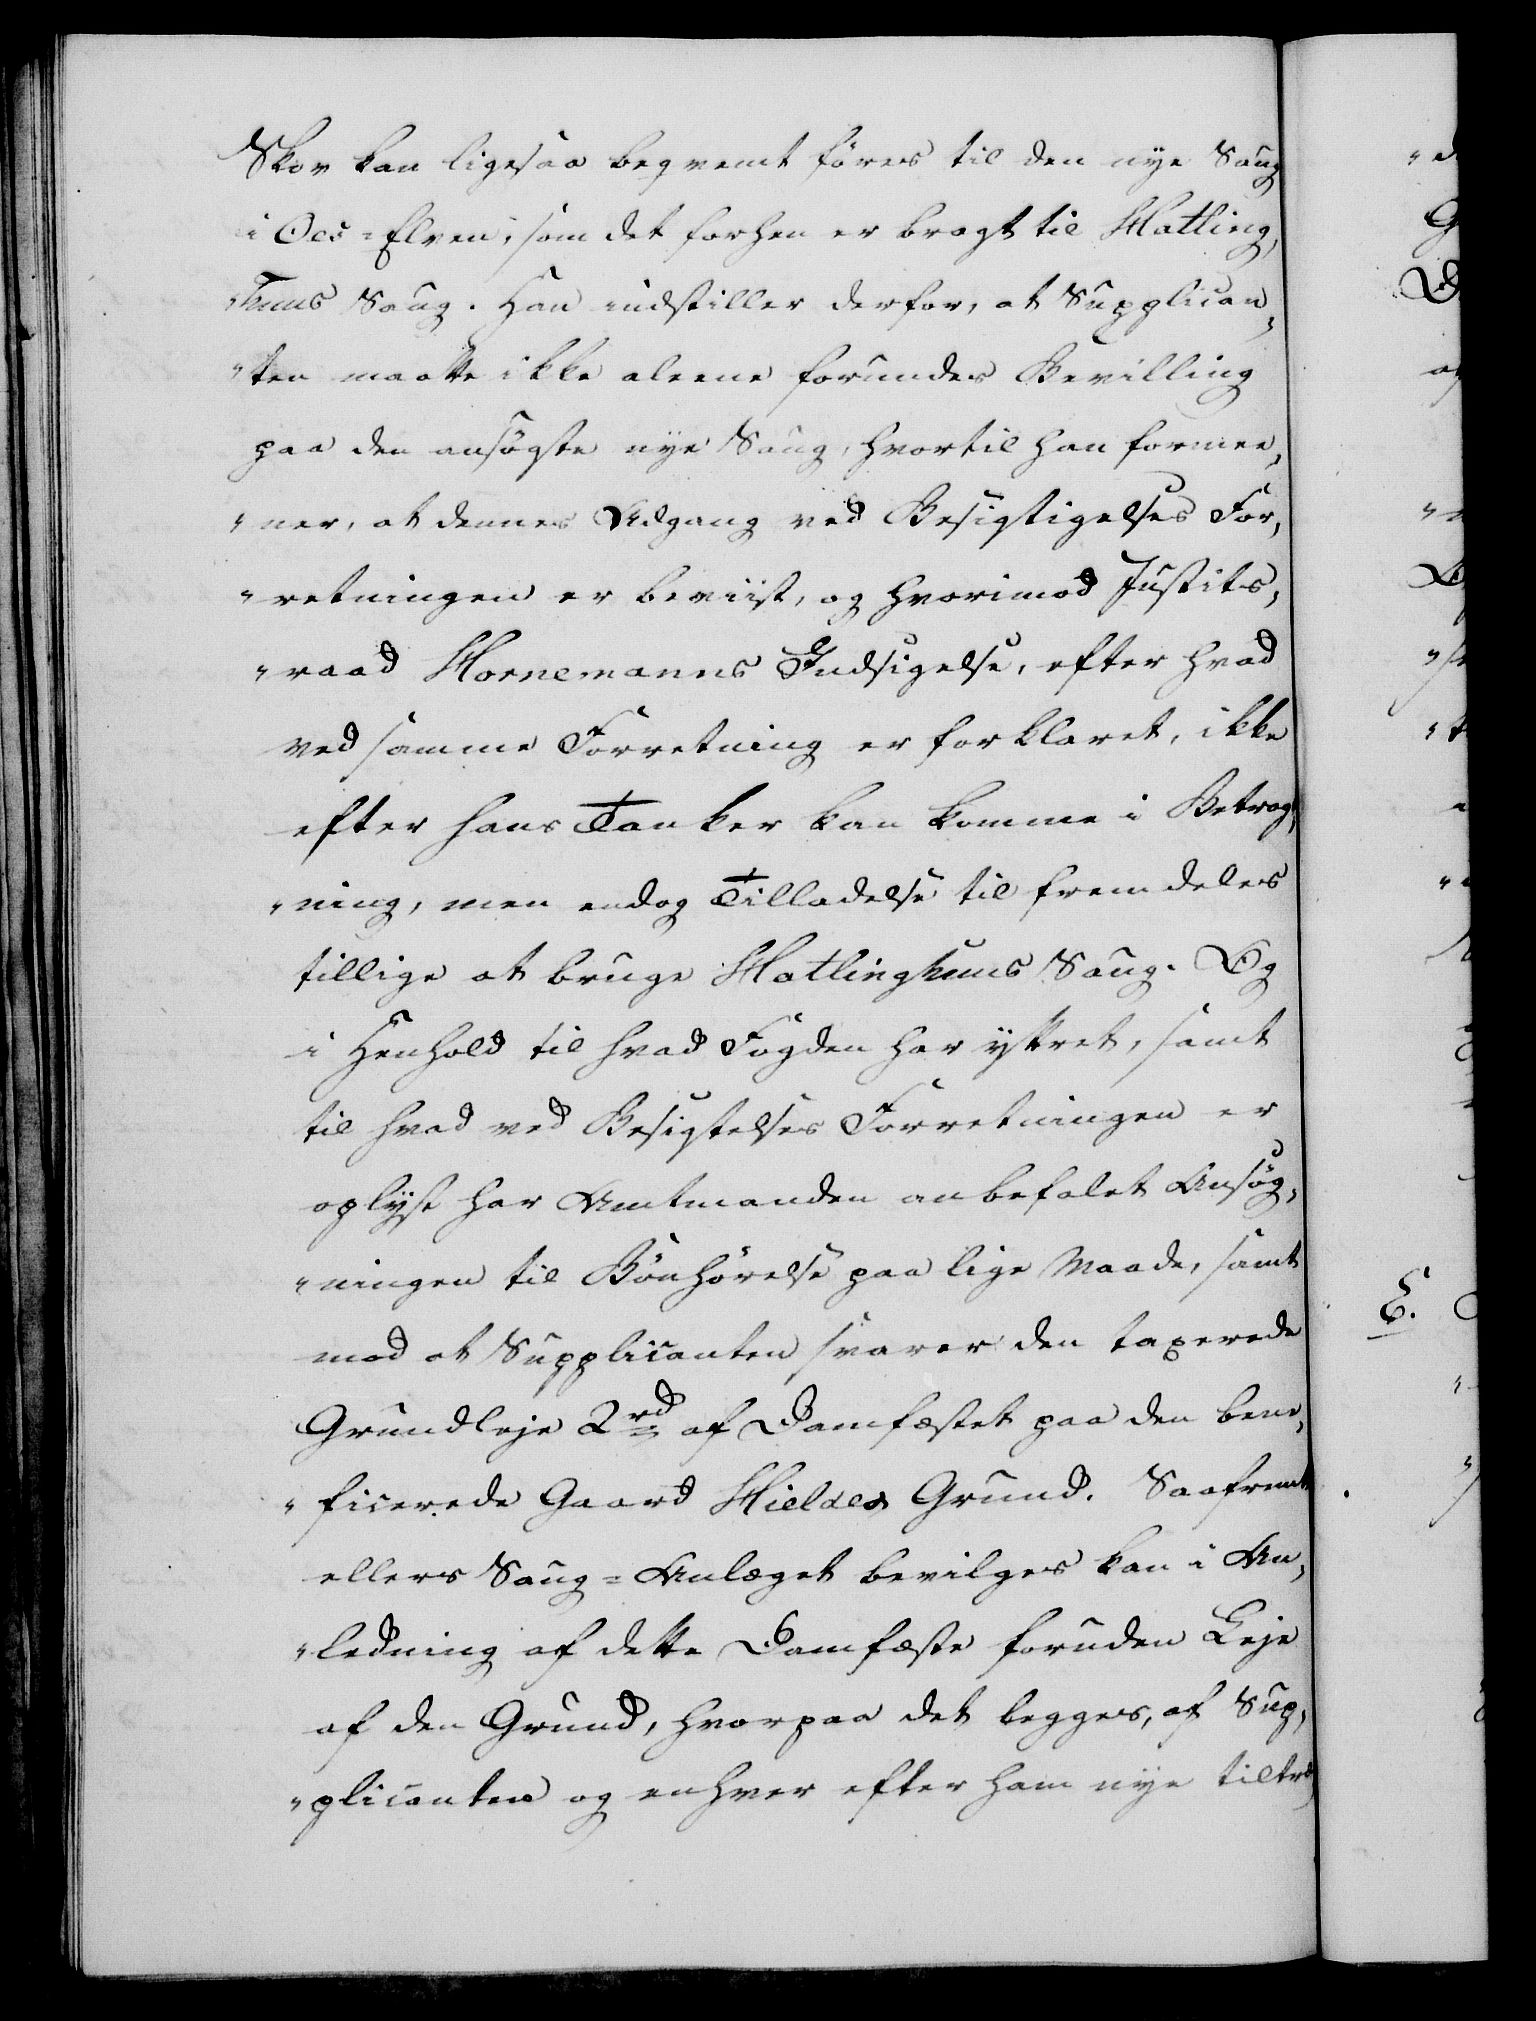 Skov kan ligesaa beqvemt föres til den nye Saug
i Oes-Elven, som det forhen er bragt til Hatling,
"huus Saug. Han indstiller derfor, at Supplican,
"ten maatte ikke aleene forundes Bevilling
paa den ansögte nye Saug, hvortil han formee,
"ner, at dennes Adgang ved Besigtigelses For,
"retningen er beviist, og hvorimod Justits,
"raad Hornemanns Indsigelse, efter hvad
ved samme Forretning er forklaret, ikke
efter hans Tanker kan komme i Betrag,
"ning, men endog Tilladelse til fremdeles
tillige at bruge Hatlinghuus Saug. Og
i Henhold til hvad Fogden har yttret, samt
til hvad ved Besigtelses Forretningen er
oplyst har Amtmanden anbefalet Ansøg,
"ningen til Bönhörelse paa lige Maade, samt
mod at Supplicanten svarer den taxerede
Grundleje 2 rd af Damfæstet paa den bene,
"ficerede Gaard Hieldes Grund. Saafremt
ellers Saug-Anlæget bevilges kan i An,
"ledning af dette Damfæste foruden Leje
af den Grund, hvorpaa det legges, af Sup,
"plicanten og enhver efter ham nye tiltræ,
E.